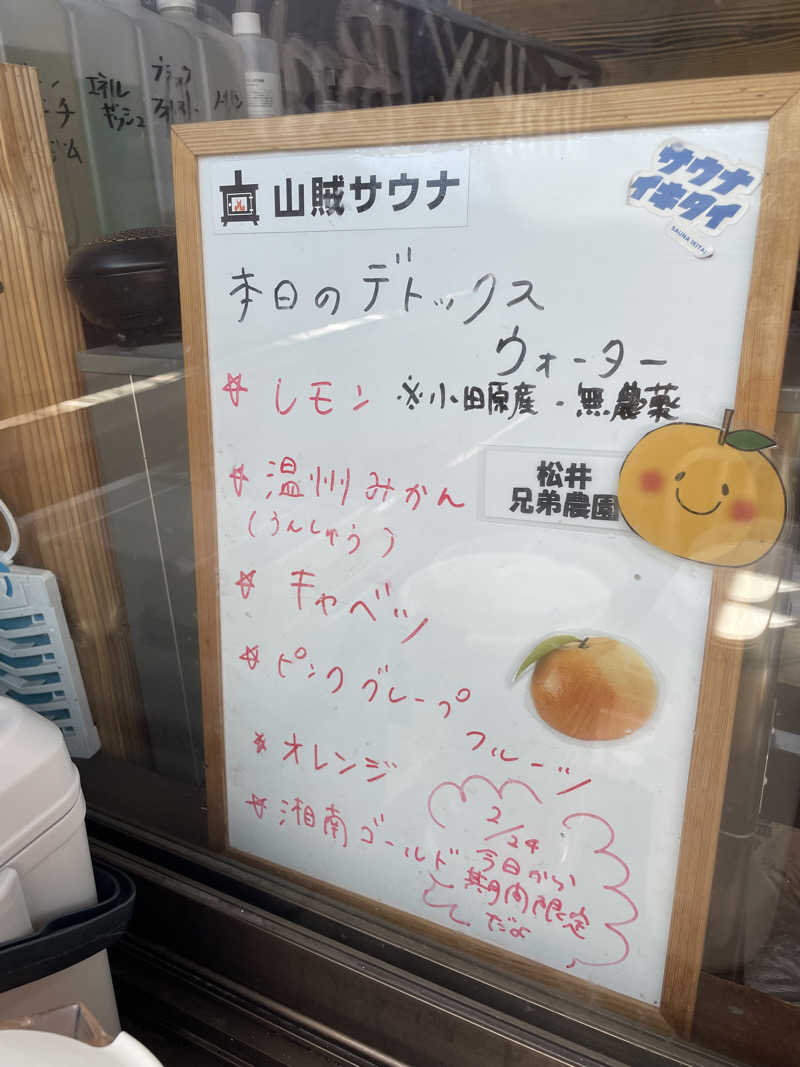 エネル
ギッシュ
山賊サウナ
サウナ
イキタイ
SAUNA IKITAI
本日のデトックス
ウォーター
☆レモン ※小田原産・無農薬
☆温州みかん
(うんしゅう)
松井
兄弟農園
☆キャベツ
☆ピンクグレープ
フルーツ
☆オレンジ
☆湘南ゴールド
2/24
今日から
期間限定
だよ